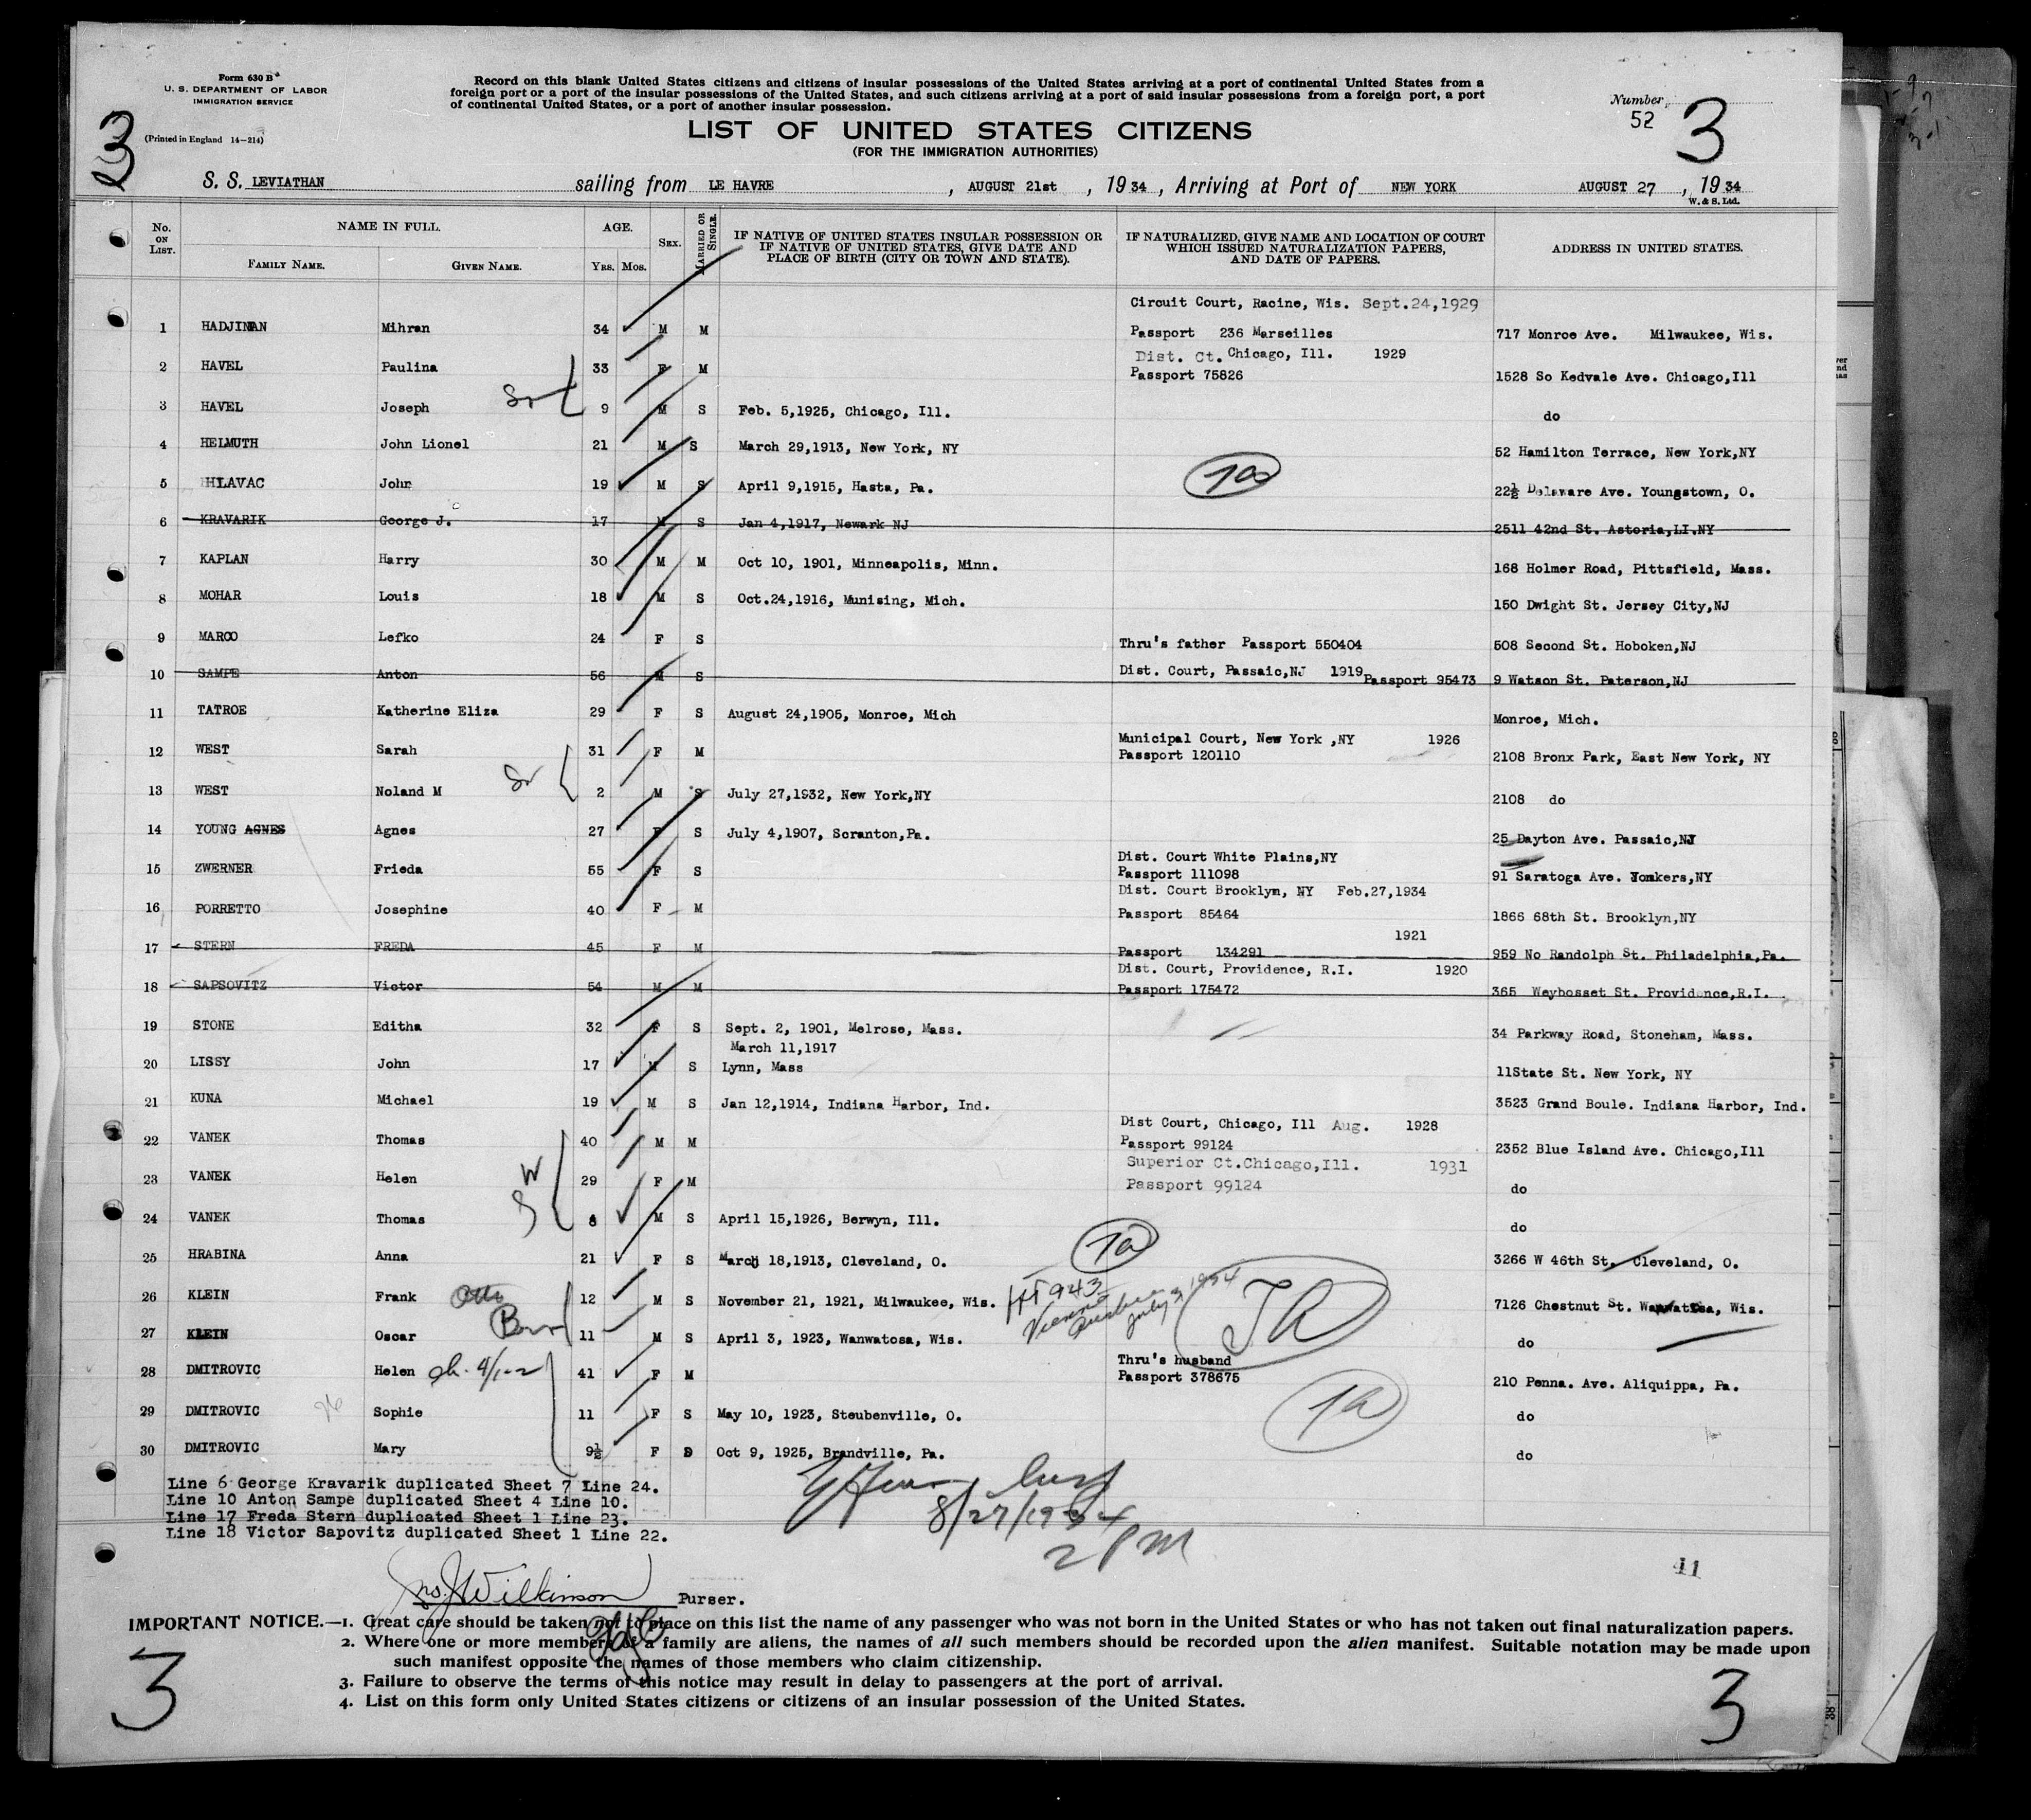 Form 630 B
U. S. DEPARTMENT OF LABOR
IMMIGRATION SERVICE
(Printed in England 14—214)
Record on this blank United States citizens and citizens of insular possessions of the United States arriving at a port of continental United States from a
foreign port or a port of the insular possessions of the United States, and such citizens arriving at a port of said insular possessions from a foreign port, a port
of continental United States, or a port of another insular possession.
Number
52
3
3
LIST OF UNITED STATES CITIZENS
(FOR THE IMMIGRATION AUTHORITIES)
S. S. LEVIATHAN sailing from LE HAVRE, AUGUST 21st, 1934, Arriving at Port of NEW YORK AUGUST 27, 1934
W. & S. Ltd.
No. ON LIST. NAME IN FULL. FAMILY NAME. GIVEN NAME. AGE. YRS. MOS. SEX. MARRIED OR SINGLE. IF NATIVE OF UNITED STATES INSULAR POSSESSION OR IF NATIVE OF UNITED STATES, GIVE DATE AND PLACE OF BIRTH (CITY OR TOWN AND STATE). IF NATURALIZED, GIVE NAME AND LOCATION OF COURT WHICH ISSUED NATURALIZATION PAPERS, AND DATE OF PAPERS. ADDRESS IN UNITED STATES.
Circuit Court, Racine, Wis. Sept.24,1929
1 HADJINAN Mihran 34 M M Passport 236 Marseilles 717 Monroe Ave. Milwaukee, Wis.
Dist. Ct. Chicago, Ill. 1929
2 HAVEL Paulina 33 F M Passport 75826 1528 So Kedvale Ave. Chicago,Ill
3 HAVEL Joseph 9 M S Feb. 5,1925, Chicago, Ill. do
4 HELMUTH John Lionel 21 M S March 29,1913, New York, NY 52 Hamilton Terrace, New York,NY
5 HLAVAC John 19 M S April 9,1915, Hasta, Pa. 22½ Delaware Ave. Youngstown, O.
6 KRAVARIK George J. 17 M S Jan 4,1917, Newark NJ 2511 42nd St. Astoria,LI.NY
7 KAPLAN Harry 30 M M Oct 10, 1901, Minneapolis, Minn. 168 Holmer Road, Pittsfield, Mass.
8 MOHAR Louis 18 M S Oct.24,1916, Munising, Mich. 150 Dwight St. Jersey City,NJ
9 MARCO Lefko 24 F S Thru's father Passport 550404 508 Second St. Hoboken,NJ
10 SAMPE Anton 56 M S Dist. Court, Passaic,NJ 1919 Passport 95473 9 Watson St. Paterson,NJ
11 TATROE Katherine Eliza 29 F S August 24,1905, Monroe, Mich Monroe, Mich.
Municipal Court, New York ,NY 1926
12 WEST Sarah 31 F M Passport 120110 2108 Bronx Park, East New York, NY
13 WEST Noland M 2 M S July 27,1932, New York,NY 2108 do
14 YOUNG AGNES Agnes 27 F S July 4,1907, Scranton,Pa. 25 Dayton Ave. Passaic,NJ
Dist. Court White Plains,NY
15 ZWERNER Frieda 55 F S Passport 111098 91 Saratoga Ave. Yonkers,NY
Dist. Court Brooklyn, NY Feb.27,1934
16 PORRETTO Josephine 40 F M Passport 85464 1866 68th St. Brooklyn,NY
1921
17 STERN FREDA 45 F M Passport 134291 959 No Randolph St. Philadelphia,Pa.
Dist. Court, Providence, R.I. 1920
18 SAPSOVITZ Victor 54 M M Passport 175472 365 Weybosset St. Providence,R.I.
19 STONE Editha 32 F S Sept. 2, 1901, Melrose, Mass. 34 Parkway Road, Stoneham, Mass.
March 11,1917
20 LISSY John 17 M S Lynn, Mass 11State St. New York, NY
21 KUNA Michael 19 M S Jan 12,1914, Indiana Harbor, Ind. 3523 Grand Boule. Indiana Harbor, Ind.
Dist Court, Chicago, Ill Aug. 1928
22 VANEK Thomas 40 M M Passport 99124 2352 Blue Island Ave. Chicago,Ill
Superior Ct.Chicago,Ill. 1931
23 VANEK Helen 29 F M Passport 99124 do
24 VANEK Thomas 8 M S April 15,1926, Berwyn, Ill. do
25 HRABINA Anna 21 F S March 18,1913, Cleveland, O. 3266 W 46th St. Cleveland, O.
26 KLEIN Frank Otto 12 M S November 21, 1921, Milwaukee, Wis. 7126 Chestnut St. Wanwatosa, Wis.
HT 943 Vienna Austria July 3, 1934
27 KLEIN Oscar 11 M S April 3, 1923, Wanwatosa, Wis. do
Thru's husband
28 DMITROVIC Helen 41 F M Passport 378675 210 Penna. Ave. Aliquippa, Pa.
29 DMITROVIC Sophie 11 F S May 10, 1923, Steubenville, O. do
30 DMITROVIC Mary 9½ F S Oct 9, 1925, Brandville, Pa. do
Line 6 George Kravarik duplicated Sheet 7 Line 24.
Line 10 Anton Sampe duplicated Sheet 4 Line 10.
Line 17 Freda Stern duplicated Sheet 1 Line 23.
Line 18 Victor Sapovitz duplicated Sheet 1 Line 22.
8/27/1934
2 PM
41
Jno. J Wilkinson Purser.
IMPORTANT NOTICE.—1. Great care should be taken not to place on this list the name of any passenger who was not born in the United States or who has not taken out final naturalization papers.
2. Where one or more members of a family are aliens, the names of all such members should be recorded upon the alien manifest. Suitable notation may be made upon
such manifest opposite the names of those members who claim citizenship.
3. Failure to observe the terms of this notice may result in delay to passengers at the port of arrival.
4. List on this form only United States citizens or citizens of an insular possession of the United States.
3
3